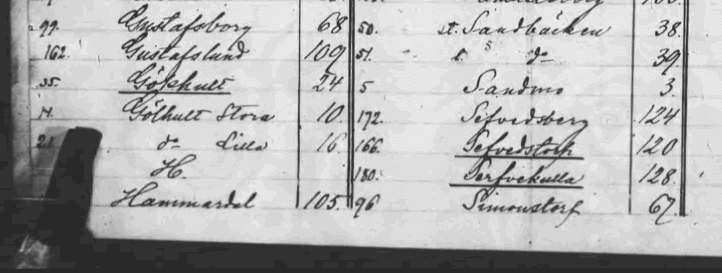 99. Gustafsborg 68 50. st. Sandbäcken 38.
162. Gustafslund 109 51. l. s do 39.
35. Gökhult 24 5 Sandmo 3.
14. Gölhult Stora 10. 172. Sefvedsberg 124
21 do Lilla 16 166. Sefvedstorp 120
H. 180. Serfvekulla 128.
Hammardal 105. 96 Simonstorp 67.